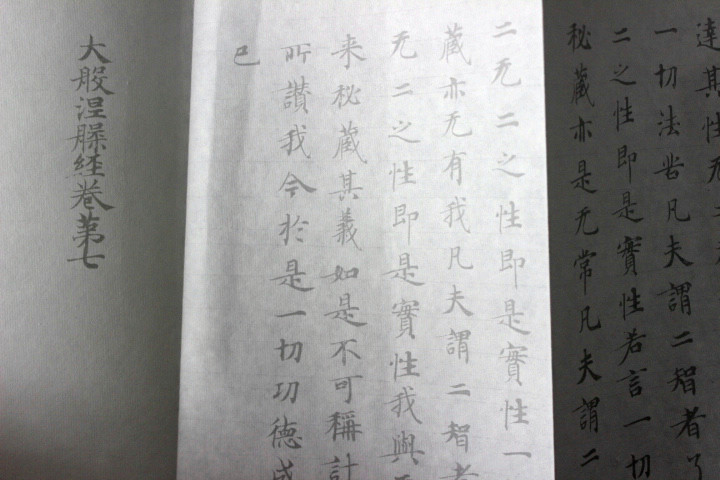 達其性无二
一切法苦凡夫謂二智者了
二之性即是實性若言一切
秘藏亦是无常凡夫謂二
二无二之性即是實性一
藏亦无有我凡夫謂二智者
无二之性即是實性我與
来秘藏其義如是不可稱計
所讃我今於是一切功德成
已
大般涅槃経卷第七